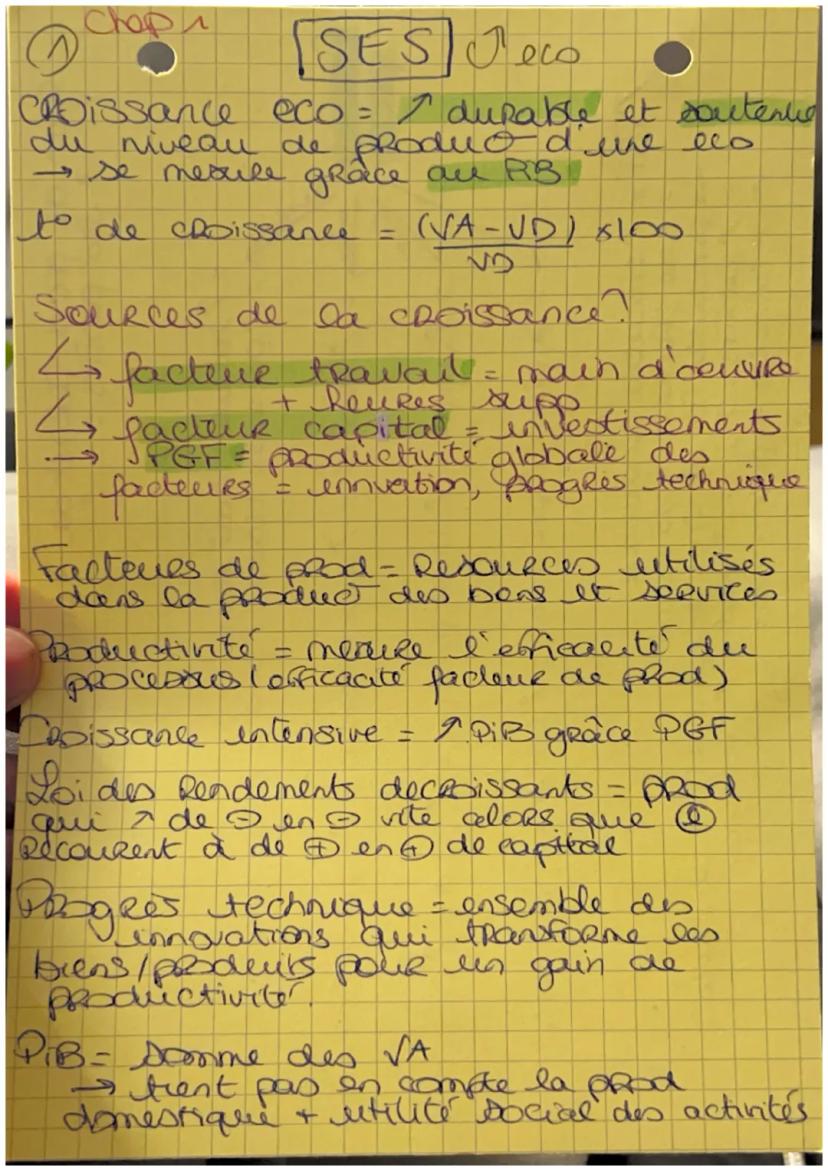 Chap 1
① SES ↗ eco
CROissance eco = ↗ durable et soutenue
du niveau de product° d'une eco
→ se mesure grâce au PIB
t° de croissance = (VA - VD) x100
VD
Sources de la croissance?
↳ facteur travail = main d'oeuvre
+ heures supp
↳ facteur capital = investissements
→ PGF = productivité globale des
facteurs = innvation, progrès technique
Facteurs de prod = Resources utilisés
dans la product° des bens et services
Productivité = mesure l'efficacité du
processus (efficacité facteur de prod)
Croissance intensive = ↗ PiB grâce PGF
Loi des Rendements decroissants = prod
qui ↗ de ⊖ en ⊖ vite alors que
Recourent à de ⊕ en ⊕ de capital
Progrès technique = ensemble des
innovations qui transforme les
biens/produits pour un gain de
productivité.
PiB = somme des VA
→ tient pas en compte la prod
domestique + utilité social des activités